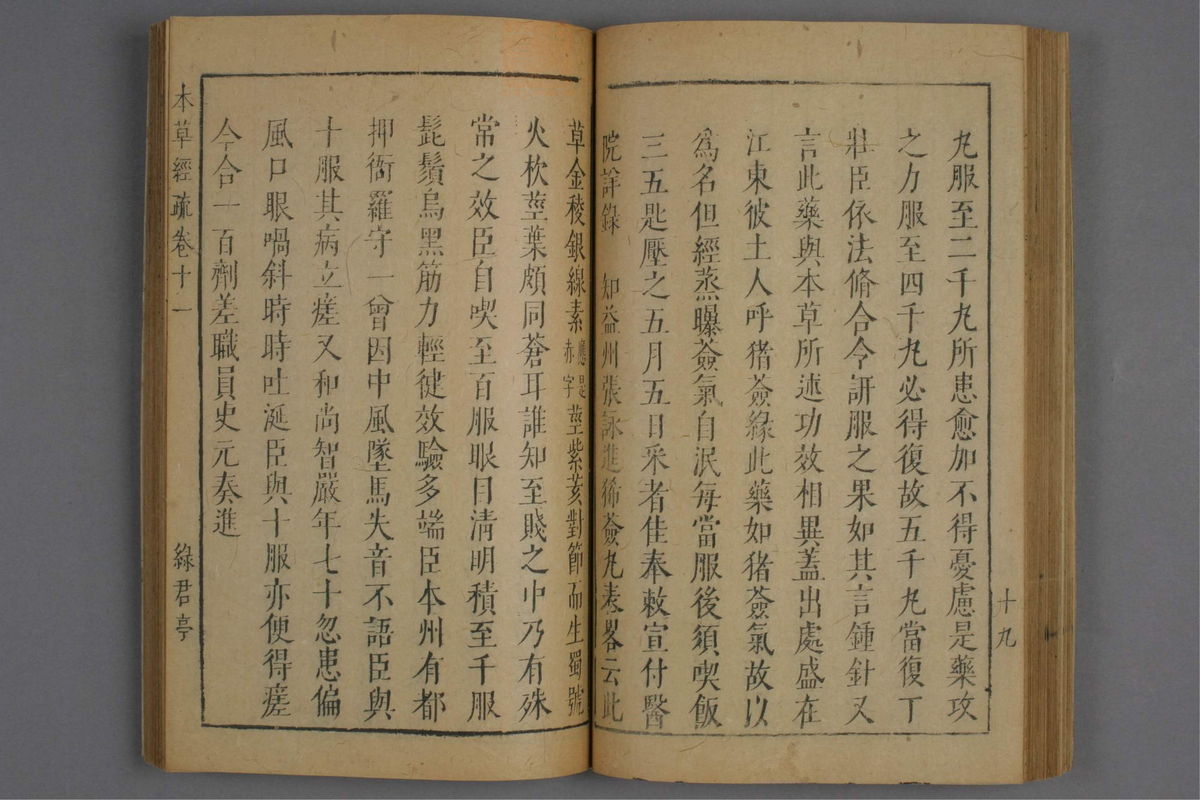 十九
丸服至二千丸所患愈加不得憂慮是藥攻
之力服至四千丸必得復故五千丸當復丁
壯臣依法脩合令訮服之果如其言鍾針又
言此藥與本草所述功效相異蓋出處盛在
江東彼土人呼猪薟緣此藥如猪薟氣故以
爲名但經蒸曝薟氣自泯每當服後須喫飯
三五匙壓之五月五日采者佳奉敕宣付醫
院詳錄 知益州張詠進豨薟丸表畧云此
草金稜銀線素應是赤字莖紫荄對節而生蜀號
火杴莖葉頗同蒼耳誰知至賤之中乃有殊
常之效臣自喫至百服眼目清明積至千服
髭鬚烏黑筋力輕健效驗多端臣本州有都
押衙羅守一曾因中風墜馬失音不語臣與
十服其病立瘥又和尚智嚴年七十忽患偏
風口眼喎斜時時吐涎臣與十服亦便得瘥
今合一百劑差職員史元奏進
本草經疏卷十一 綠君亭